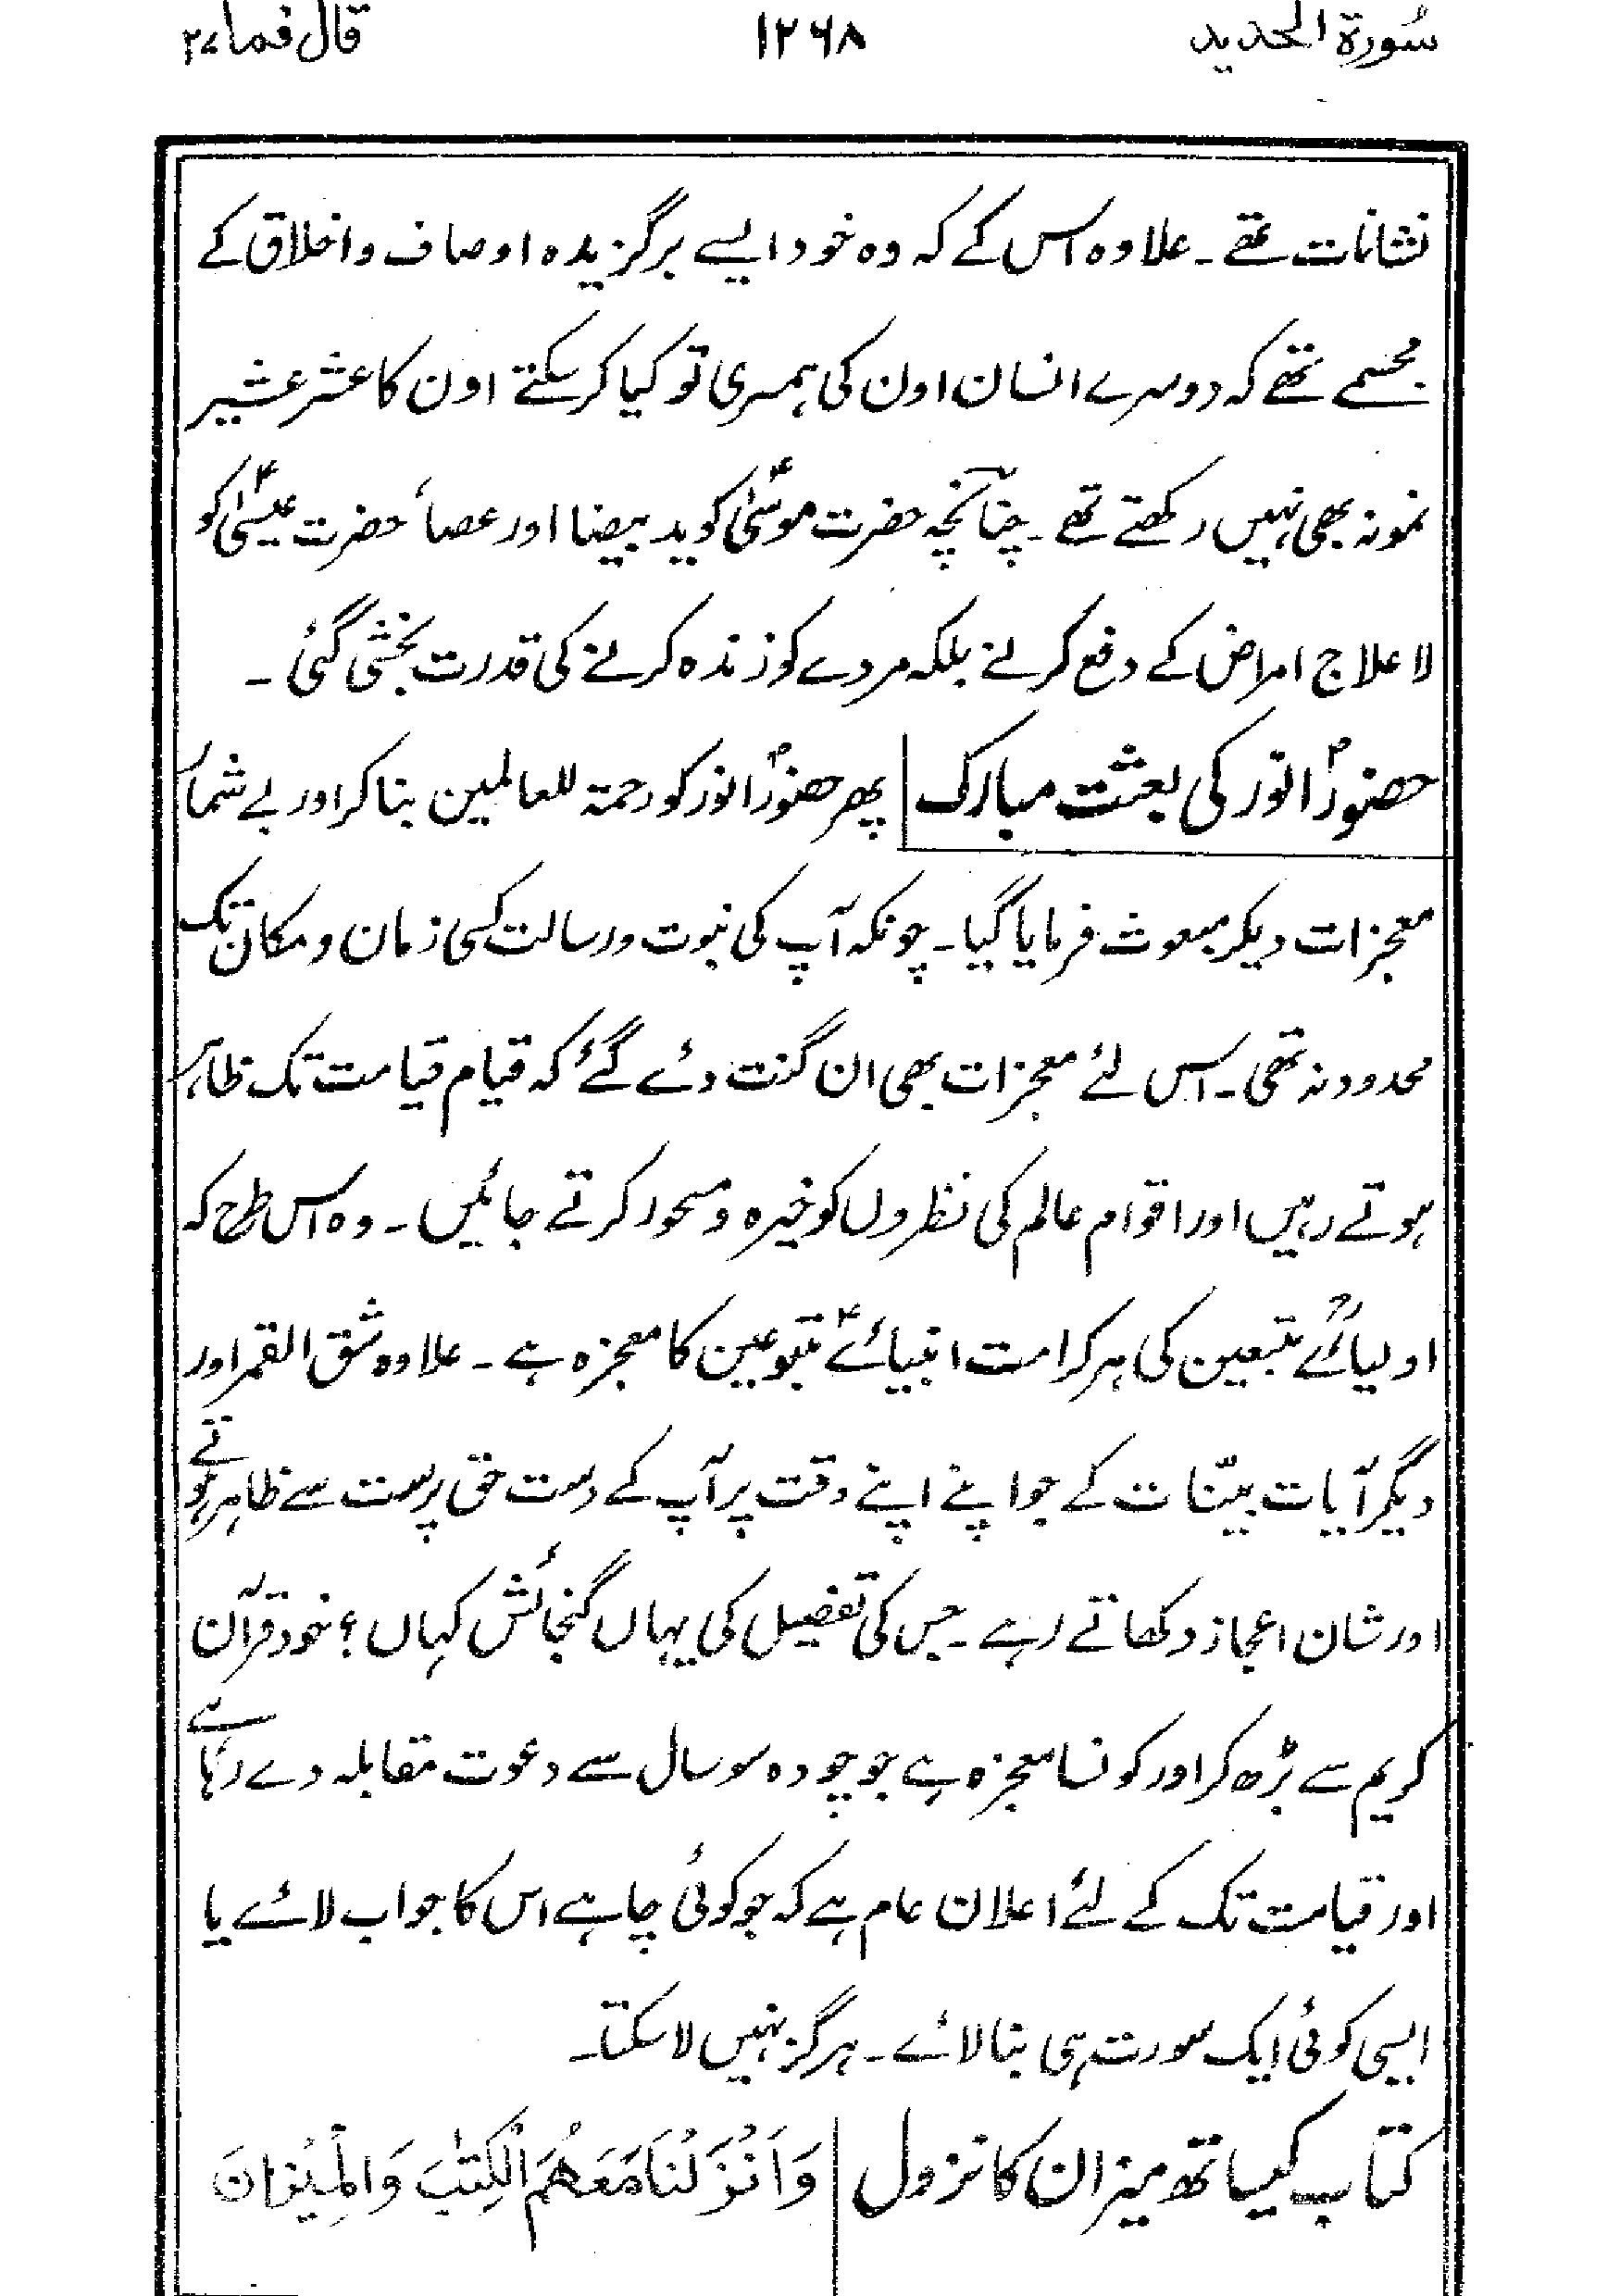 سُورۃ الحدید ۱۲۶۸ قال فما ۲۷
نشانات تھے ۔ علاوہ اس کے کہ وہ خود ایسے برگزیدہ اوصاف و اخلاق کے
مجسمے تھے کہ دوسرے انسان اون کی ہمسری تو کیا کرسکتے اون کا عشر عشیر
نمونہ بھی نہیں رکھتے تھے ۔ چنانچہ حضرت موسیٰؑ کو ید بیضا اور عصا ٗ حضرت عیسیٰؑ کو
لا علاج امراض کے دفع کرنے بلکہ مردے کو زندہ کرنے کی قدرت بخشی گئی ۔
حضورؐ انور کی بعثت مبارک | پھر حضورؐ انور کو رحمۃ للعالمین بنا کر اور بے شمار
معجزات دیکر مبعوث فرمایا گیا ۔ چونکہ آپ کی نبوت و رسالت کسی زمان و مکان تک
محدود نہ تھی ۔ اس لئے معجزات بھی ان گنت دئے گئے کہ قیام قیامت تک ظاہر
ہوتے رہیں اور اقوام عالم کی نظروں کو خیرہ و مسحور کرتے جائیں ۔ وہ اس طرح کہ
اولیائےؒ متبعین کی ہر کرامت انبیائےؑ متبوعین کا معجزہ ہے ۔ علاوہ شق القمر اور
دیگر آیات بیّنات کے جو اپنے اپنے وقت پر آپ کے دست حق پرست سے ظاہر ہوتے
اور شان اعجاز دکھاتے رہے ۔ جس کی تفصیل کی یہاں گنجائش کہاں ؟ خود قرآن
کریم سے بڑھ کر اور کونسا معجزہ ہے جو چودہ سو سال سے دعوت مقابلہ دے رہا ہے
اور قیامت تک کے لئے اعلان عام ہے کہ جو کوئی چاہے اس کا جواب لائے یا
ایسی کوئی ایک سورت ہی بنا لائے ۔ ہرگز نہیں لا سکتا ۔
کتاب کیساتھ میزان کا نزول | وَاَنْزَلْنَا مَعَهُمُ الْكِتٰبَ وَالْمِيْزَانَ